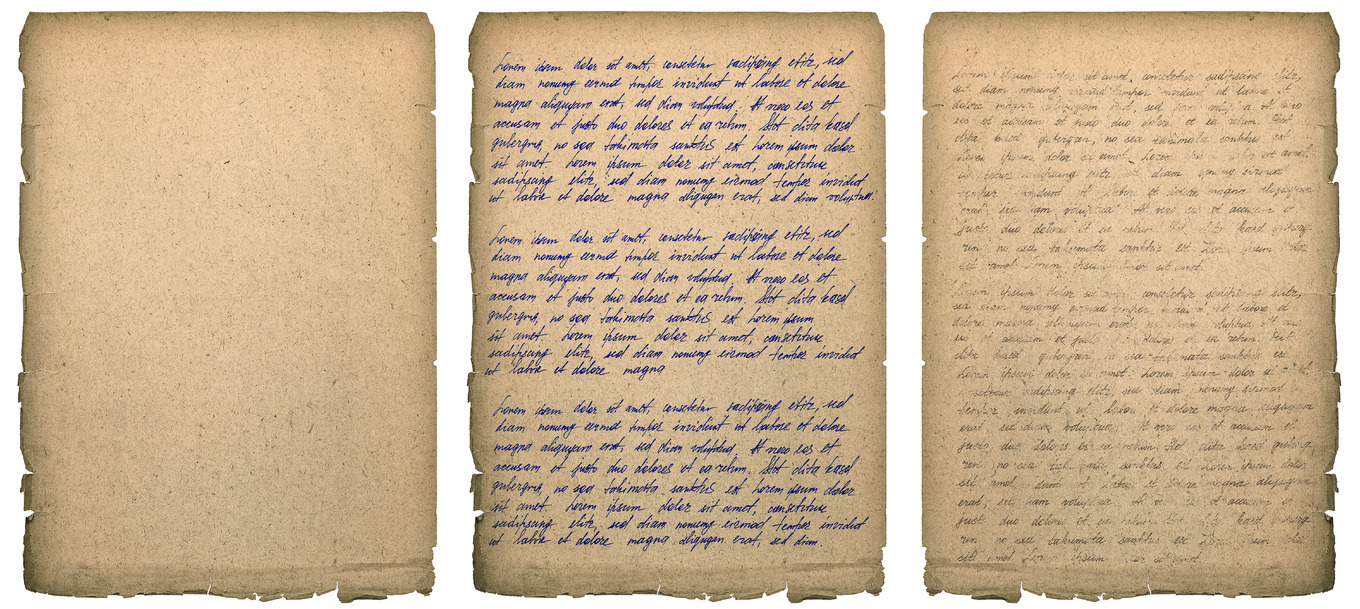 Lorem ipsum dolor sit amet, consetetur sadipscing elitr, sed
diam nonumy eirmod tempor invidunt ut labore et dolore
magna aliquyam erat, sed diam voluptua. At vero eos et
accusam et justo duo dolores et ea rebum. Stet clita kasd
gubergren, no sea takimata sanctus est Lorem ipsum dolor
sit amet. Lorem ipsum dolor sit amet, consetetur
sadipscing elitr, sed diam nonumy eirmod tempor invidut
ut labore et dolore magna aliquyam erat, sed diam voluptua.
Lorem ipsum dolor sit amet, consetetur sadipscing elitr, sed
diam nonumy eirmod tempor invidunt ut labore et dolore
magna aliquyam erat, sed diam voluptua. At vero eos et
accusam et justo duo dolores et ea rebum. Stet clita kasd
gubergren, no sea takimata sanctus est Lorem ipsum
sit amet. Lorem ipsum dolor sit amet, consetetur
sadipscing elitr, sed diam nonumy eirmod tempor invidut
ut labore et dolore magna
Lorem ipsum dolor sit amet, consetetur sadipscing elitr, sed
diam nonumy eirmod tempor invidunt ut labore et dolore
magna aliquyam erat, sed diam voluptua. At vero eos et
accusam et justo duo dolores et ea rebum. Stet clita kasd
gubergren, no sea takimata sanctus est Lorem ipsum dolor
sit amet. Lorem ipsum dolor sit amet, consetetur
sadipscing elitr, sed diam nonumy eirmod tempor invidut
ut labore et dolore magna aliquyam erat, sed diam.
Lorem ipsum dolor sit amet, consetetur sadipscing elitr,
sed diam nonumy tempor ut labore et
dolore magna aliquyam erat, sed
eos et accusam et justo duo dolor et ea rebum. Stet
clita kasd gubergren, no sea takimata sanctus est
Lorem ipsum dolor amet. Lorem sit amet,
elitr, sed diam eirmod
tempor invidunt ut labore et dolore magna aliquyam
erat, voluptua. At vero eos et accusam et
justo duo dolores et ea rebum. Stet clita kasd
no sea takimata sanctus est Lorem ipsum dolor
sit amet Lorem ipsum dolor sit amet.
Lorem ipsum dolor sit consetetur elitr,
sed diam nonumy eirmod tempor ut labore
dolore magna aliquyam erat, voluptua. At
et accusam et justo dolores et ea rebum. Stet
clita kasd gubergren, no sea sanctus est
Lorem ipsum dolor amet. Lorem ipsum dolor
sadipscing elitr, sed diam nonumy eirmod
tempor invidunt ut labore et dolore magna aliquyam
erat, sed diam voluptua. At vero eos et accusam et
justo duo dolores et ea rebum. Stet clita kasd
no sea sanctus est Lorem ipsum dolor
sit amet ut labore et dolore magna aliquyam
erat, voluptua. At et accusam
justo duo dolores et ea rebum. kasd
no sea takimata sanctus est dolor
sit amet ipsum sit amet.